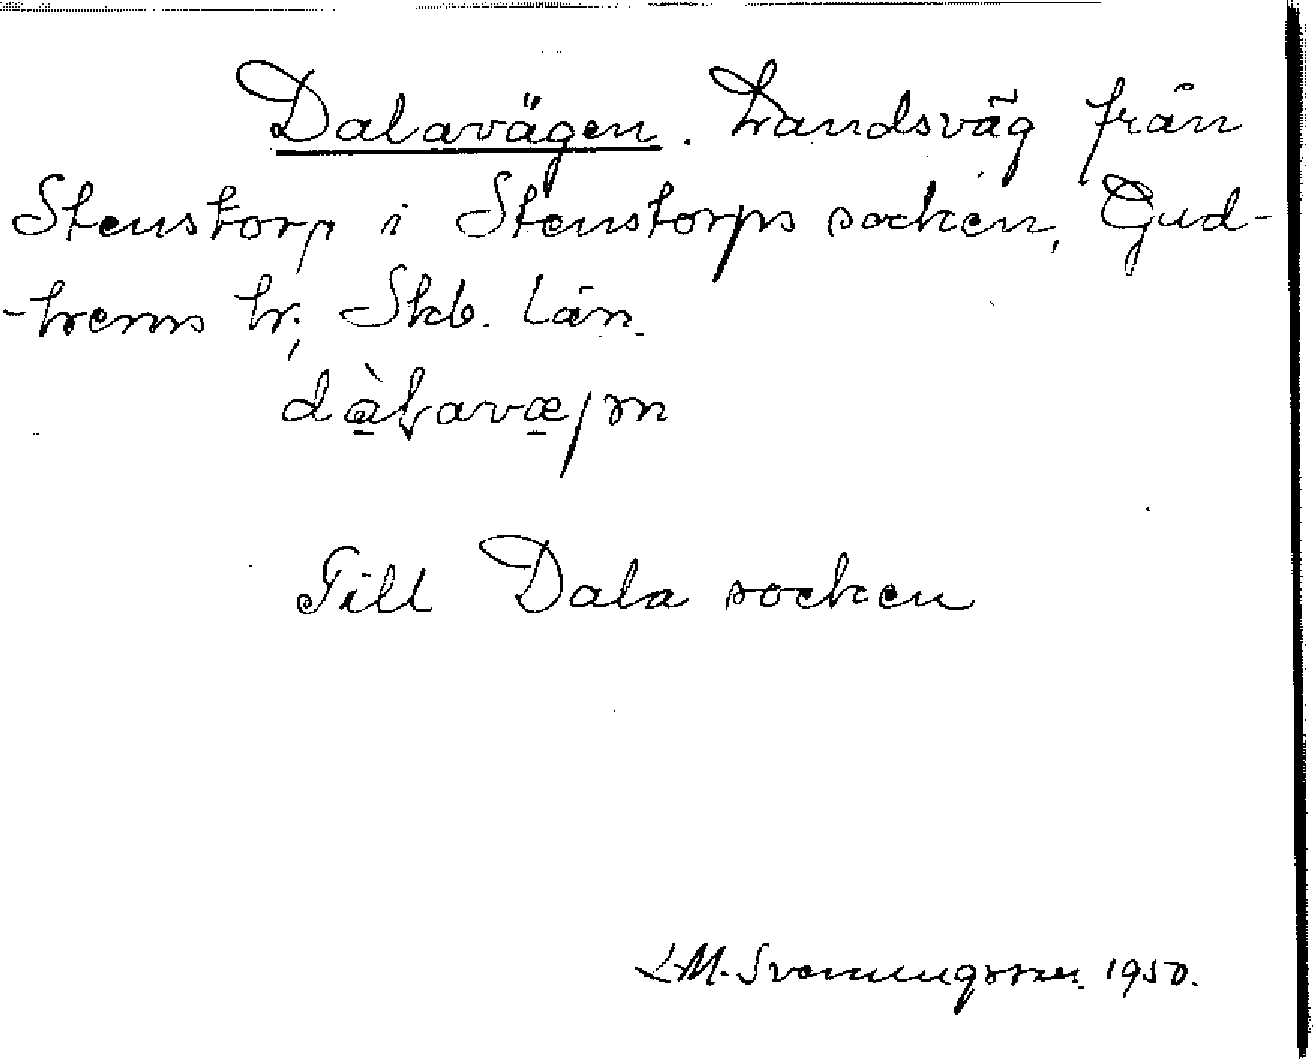 Dalavägen. Landsväg från
Stenstorp i Stenstorps socken, Gud-
-hems hr, Skb. län.
Till Dala socken
L-M. Svenningsson 1950.